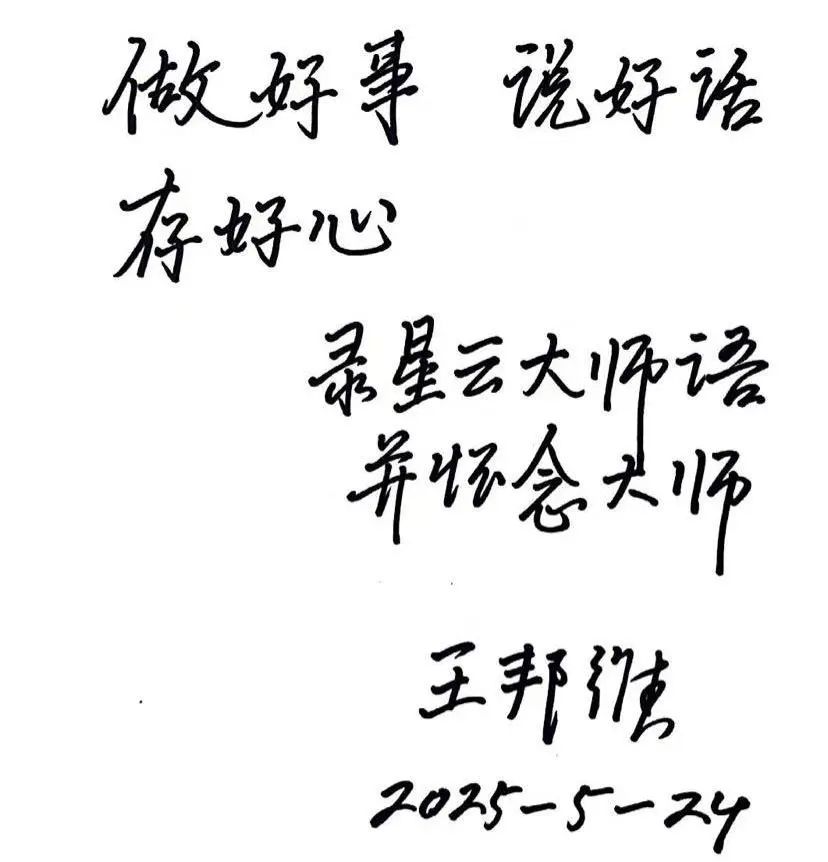 做好事 说好话
存好心
录星云大师语
并怀念大师
王邦维
2025-5-24